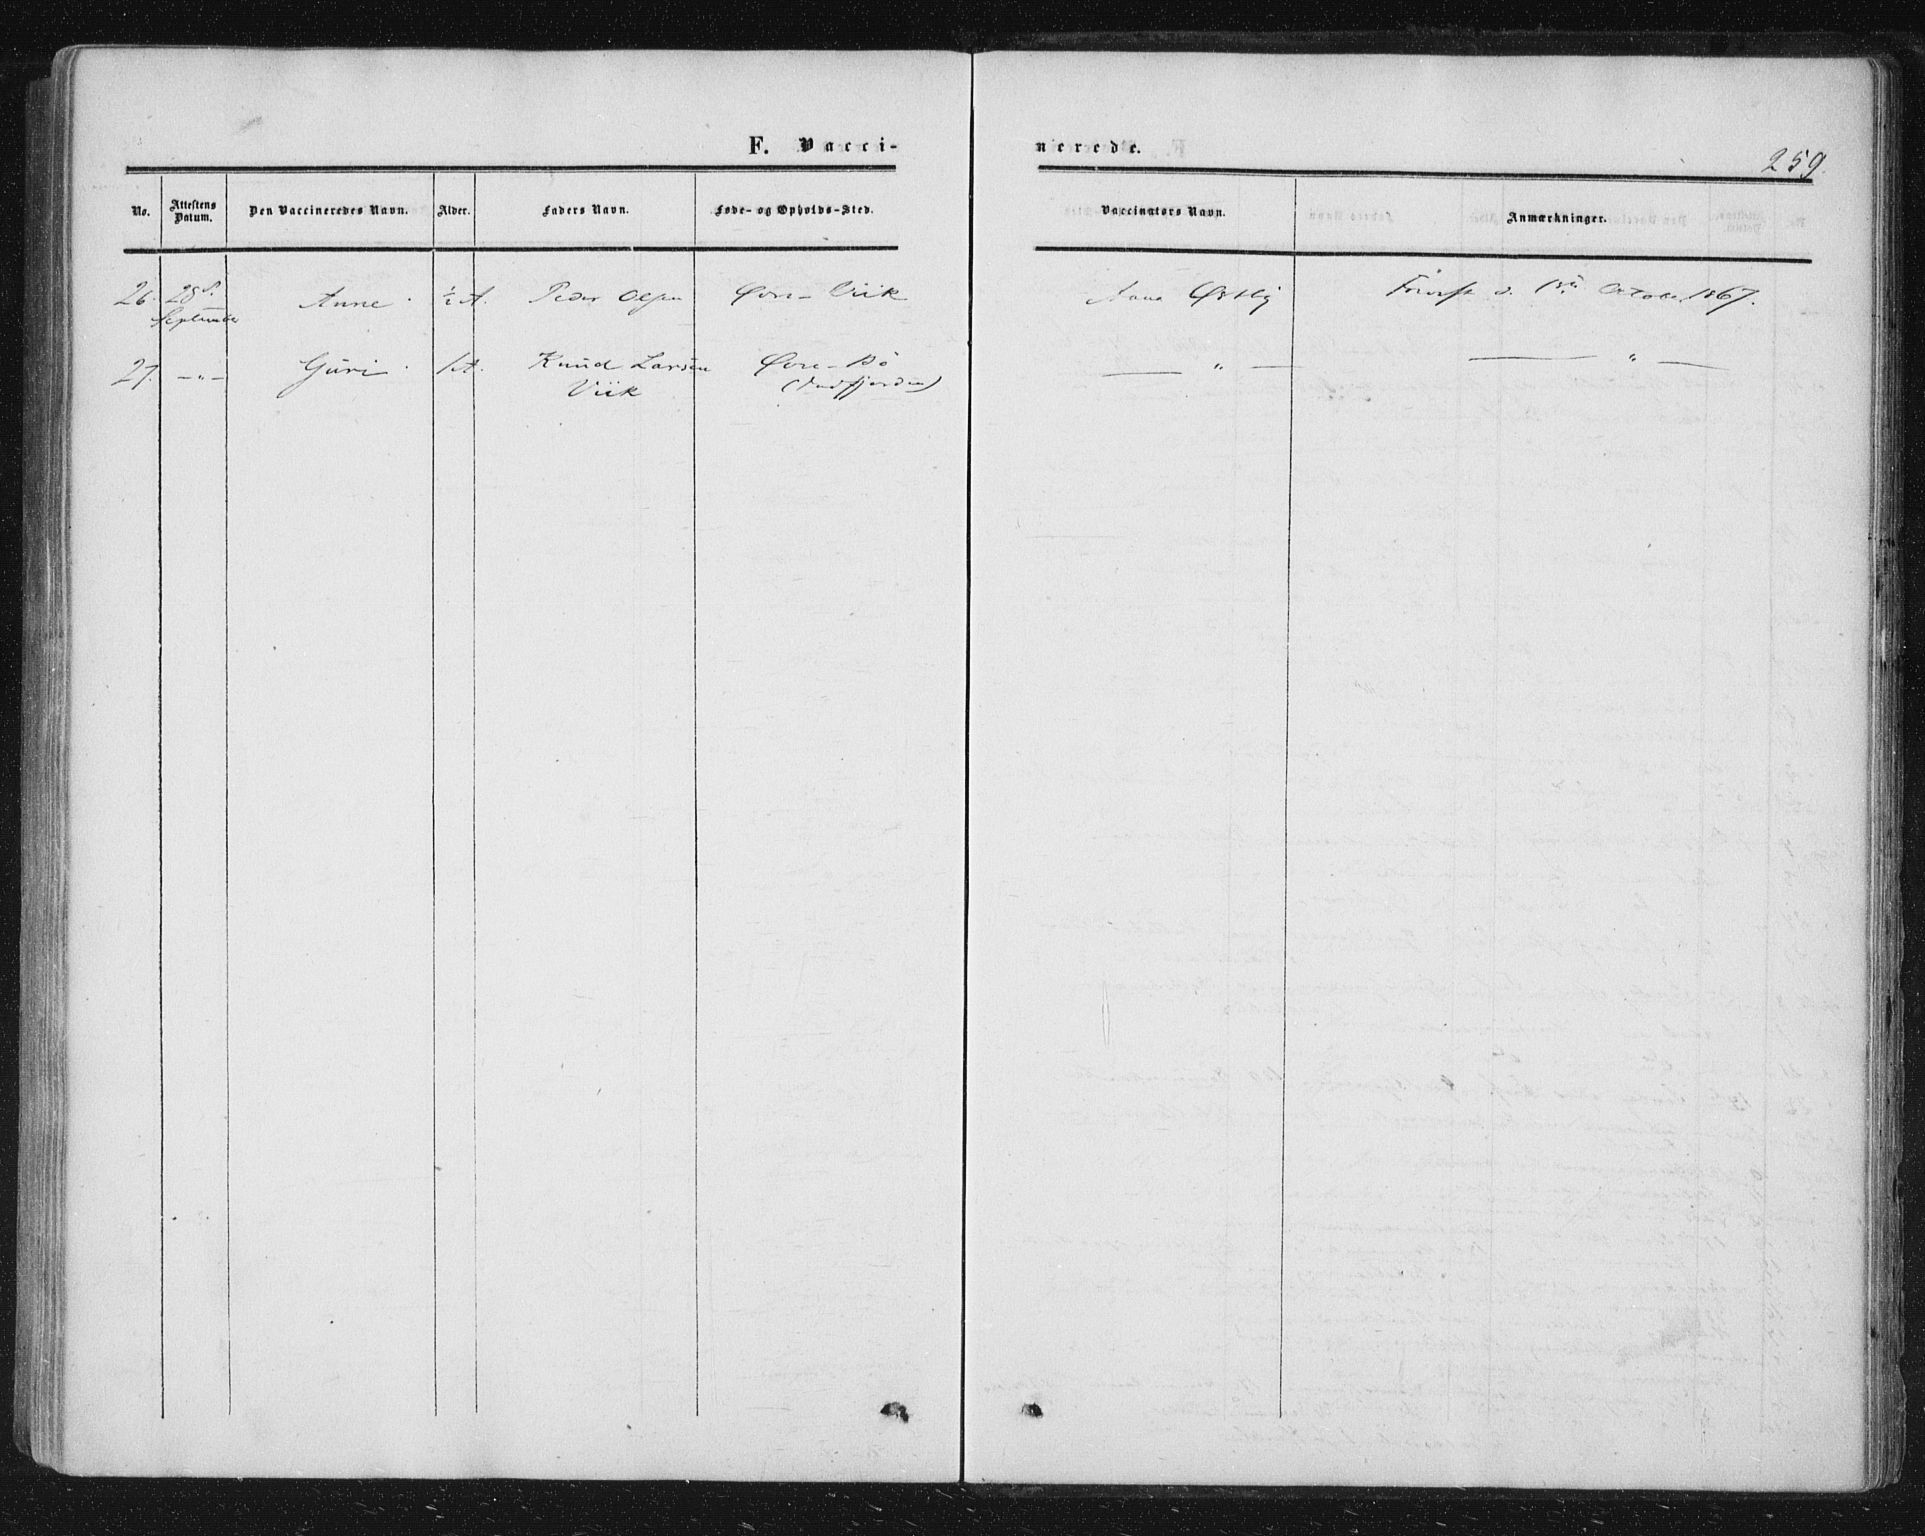 F. Vacci-
nerede.
259.
No.
Attestens Datum.
Den Vaccineredes Navn.
Alder.
Faders Navn.
Føde- og Opholds-Sted.
Vaccinatørs Navn.
Anmærkninger.
26. 28d. September Anne ½ A. Peder Olsen Øvre-Viik Anna Østby d. 1ste October 1867.
27. —„— Guri 1 A. Knud Larsen Øvre-Bø — „ — — „ —
Viik (Indfjorden)